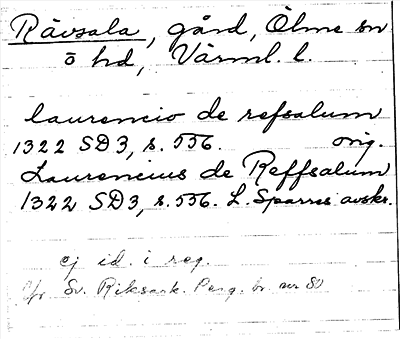 Rävsala, gård, Ölme sn
ö hd, Värml. l.
laurencio de refsalum
1322 SD3, s. 556. orig.
Laurencius de Reffsalum
1322 SD3, s. 556. L. Sparres avskr.
ej id. i reg.
Jfr Sv. Riksark. Perg. br. nr 80